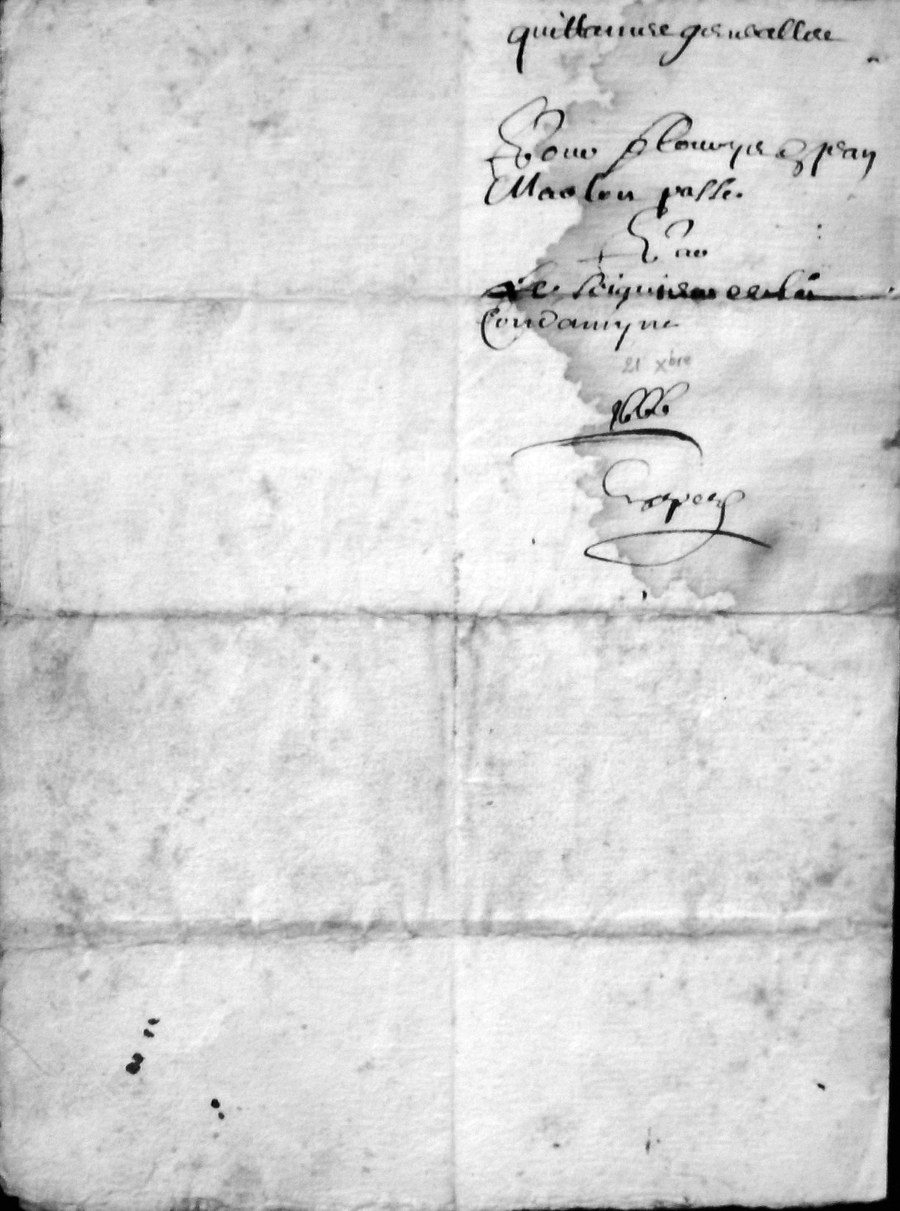 quittanse generalle
Pour Clouys & Jean
Maslon passe
Par
Le seigneur de la
Condamyne
21 Xbre
1666